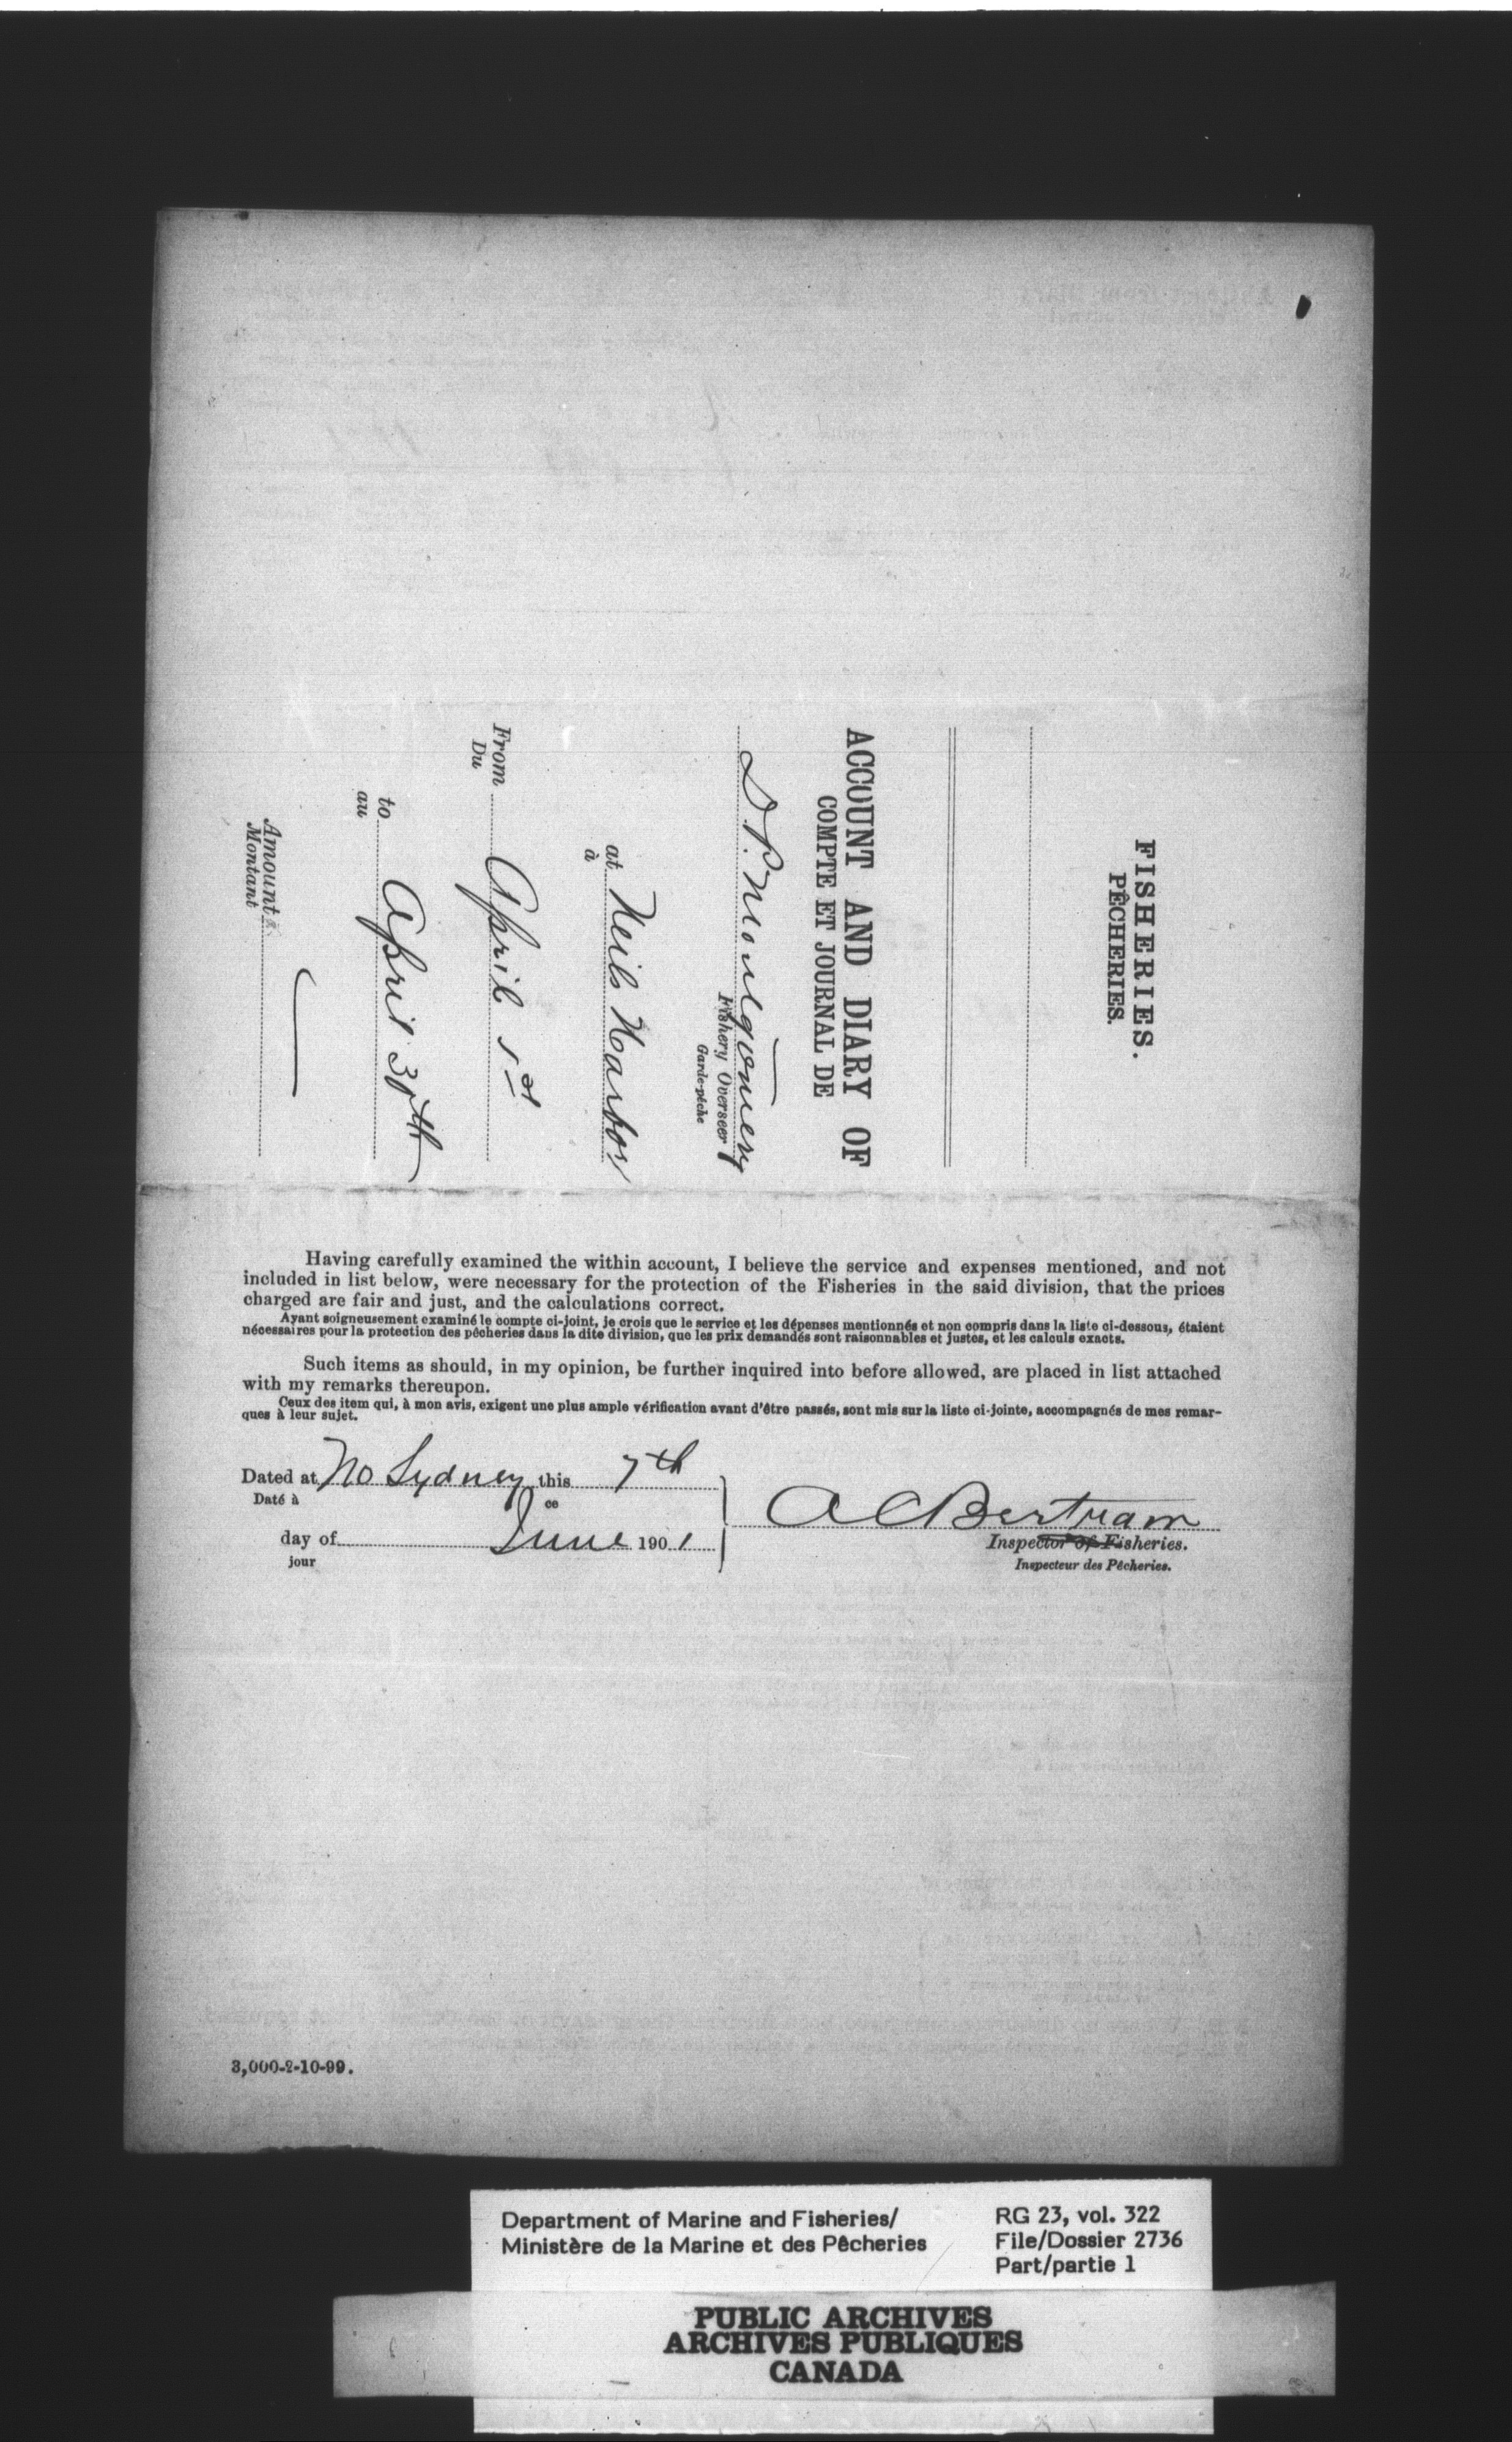 FISHERIES.
PÊCHERIES.
ACCOUNT AND DIARY OF
COMPTE ET JOURNAL DE
D. P. Montgomery
Fishery Overseer
Garde-pêche
at Neils Harbor
à
From April 1st
Du
to April 30th
au
Amount
Montant
Having carefully examined the within account, I believe the service and expenses mentioned, and not
included in list below, were necessary for the protection of the Fisheries in the said division, that the prices
charged are fair and just, and the calculations correct.
Ayant soigneusement examiné le compte ci-joint, je crois que le service et les dépenses mentionnés et non compris dans la liste ci-dessous, étaient
nécessaires pour la protection des pêcheries dans la dite division, que les prix demandés sont raisonnables et justes, et les calculs exacts.
Such items as should, in my opinion, be further inquired into before allowed, are placed in list attached
with my remarks thereupon.
Ceux des item qui, à mon avis, exigent une plus ample vérification avant d'être passés, sont mis sur la liste ci-jointe, accompagnés de mes remar-
ques à leur sujet.
Dated at No Sydney this 7th
Daté à ce
day of June 1901
jour
A C Bertram
Inspector of Fisheries.
Inspecteur des Pêcheries.
3,000-2-10-99.
Department of Marine and Fisheries/
Ministère de la Marine et des Pêcheries
RG 23, vol. 322
File/Dossier 2736
Part/partie 1
PUBLIC ARCHIVES
ARCHIVES PUBLIQUES
CANADA